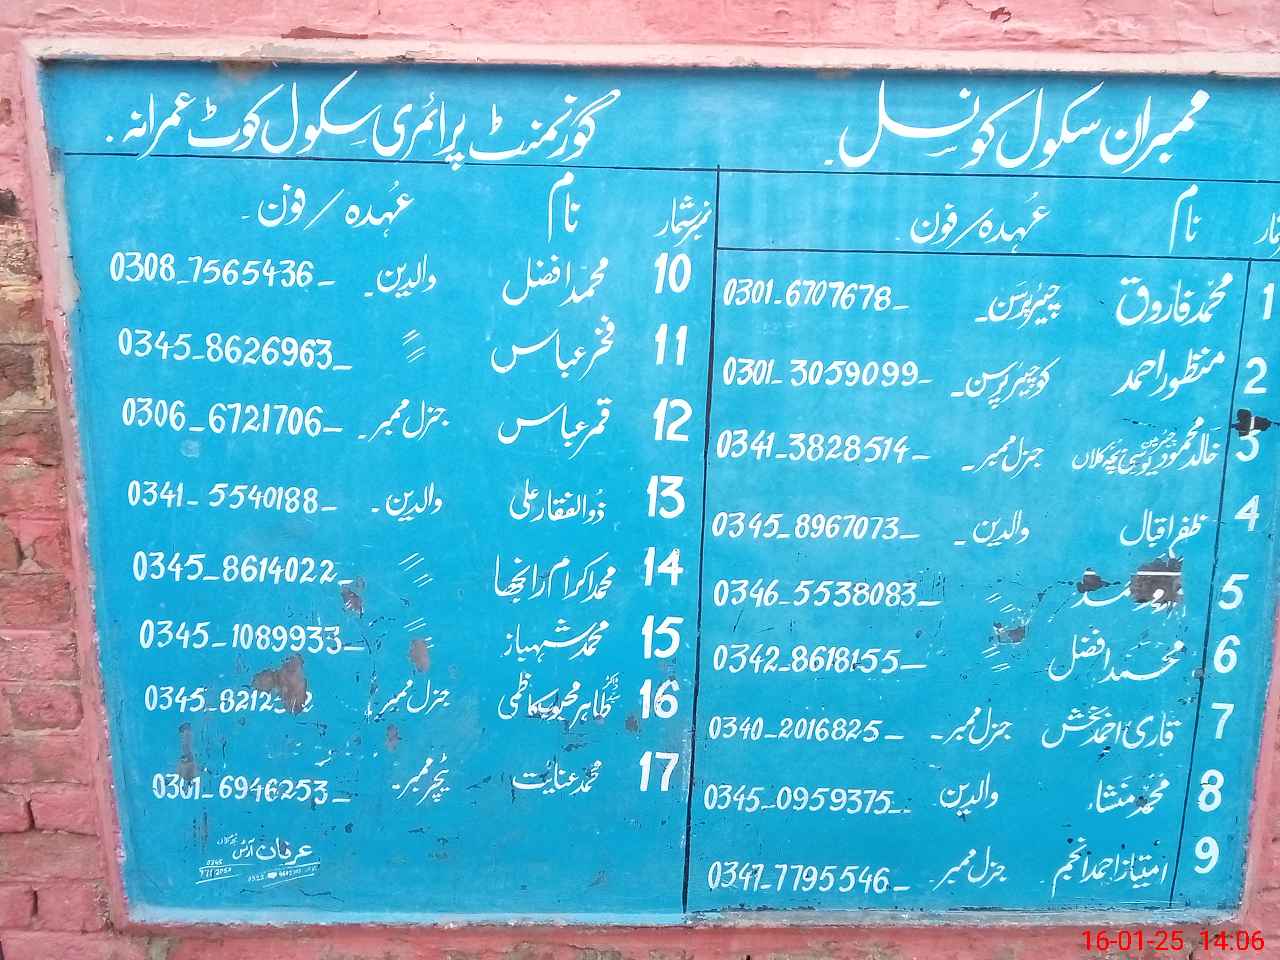 ممبران سکول کونسل۔
گورنمنٹ پرائمری سکول کوٹ عمرانہ۔
نام عُہدہ/فون۔
1 محمد فاروق چیئرپرسن۔ 0301-6707678-
2 منظور احمد کوچیئرپرسن۔ 0301-3059099-
3 خالد محمود جنرل ممبر۔ 0341-3828514-
4 ظفر اقبال والدین۔ 0345-8967073-
5 〃 0346-5538083-
6 محمد افضل 〃 0342-8618155-
7 قاری احمد بخش جنرل ممبر۔ 0340-2016825-
8 محمد منشاء والدین 0345-0959375-
9 امتیاز احمد انجم۔ جنرل ممبر۔ 0341-7795546-
نمبر شمار نام عُہدہ/فون۔
10 محمد افضل والدین۔ 0308-7565436-
11 فخر عباس 〃 0345-8626963-
12 قمر عباس جنرل ممبر۔ 0306-6721706-
13 ذُوالفقار علی والدین۔ 0341-5540188-
14 محمد اکرام رانجھا 〃 0345-8614022-
15 محمد شہباز 〃 0345-1089933-
16 طاہر محبوب کاظمی جنرل ممبر۔ 0345-8212
17 محمد عنایت ٹیچر ممبر۔ 0301-6946253-
عرفان آرٹس
0345
16-01-25 14:06